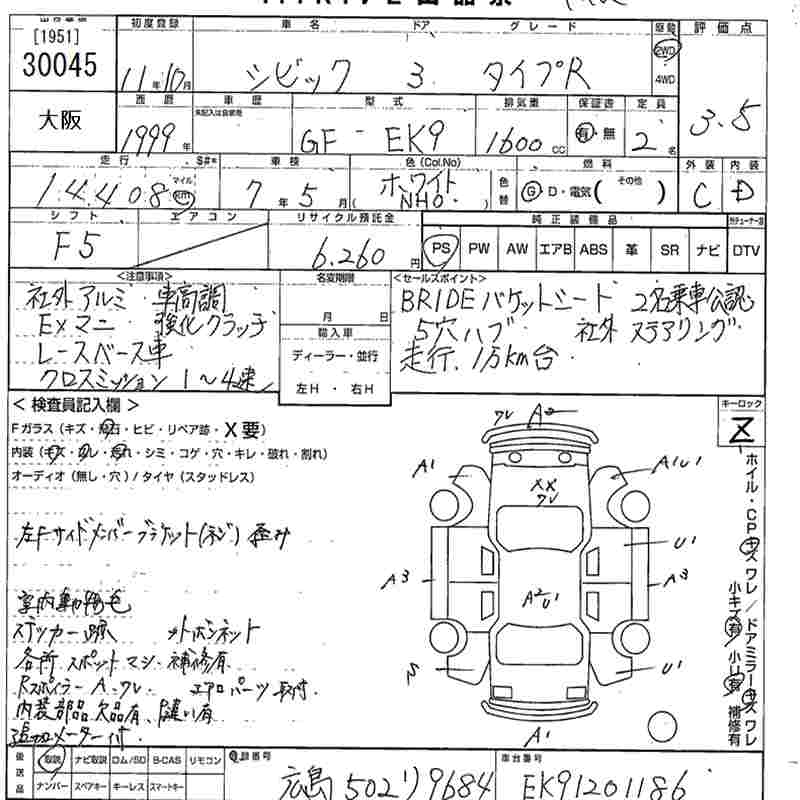 [1951]
30045
初度登録 車名 ドア グレード 駆動 評価点
11年10月 シビック 3 タイプR 2WD 4WD 3.5
大阪
西暦 車歴 型式 排気量 保証書 定員
未記入は自家用
1999年 GF-EK9 1600cc 有・無 2名
走行 S#* 車検 色(Col.No) 燃料 外装 内装
14408 マイル km 7年5月 ( ホワイト NHO ) 色替 G D・電気( その他 ) C D
シフト エアコン リサイクル預託金 純正装備品
F5 6,260円 PS PW AW エアB ABS 革 SR ナビ DTV
<注意事項> 名変期限 <セールスポイント>
社外アルミ 車高調
EXマニ 強化クラッチ
レースベース車
クロスミッション 1〜4速
月 日
輸入車
ディーラー・並行
左H・右H
BRIDEバケットシート 2名乗車公認
5穴ハブ 社外ステアリング
走行、1万km台
<検査員記入欄> キーロック
Fガラス(キズ・飛石・ヒビ・リペア跡・X要)
内装(キズ・スレ・汚れ・シミ・コゲ・穴・キレ・破れ・割れ)
オーディオ(無し・穴)/タイヤ(スタッドレス)
左Fサイドメンバーブラケット(ネジ)歪み
室内動物毛
ステッカー跡 社外ボンネット
各所スポットマシ、補修有
Rスポイラー A、ワレ. エアロパーツ取付.
内装部品欠品有、
追加メーター付
ワレ A2
A1 XX ワレ A1U1
U1
A3 A2U1 A3
U1
A1
ホイル・CPキズワレ/ドアミラーキズワレ
小キズ有 小U有 補修有
後送品 取説 ナビ取説 ロム/SD B-CAS リモコン
ナンバー スペアキー キーレス スマートキー
登録番号 車台番号
広島 502 リ 9684 EK91201186